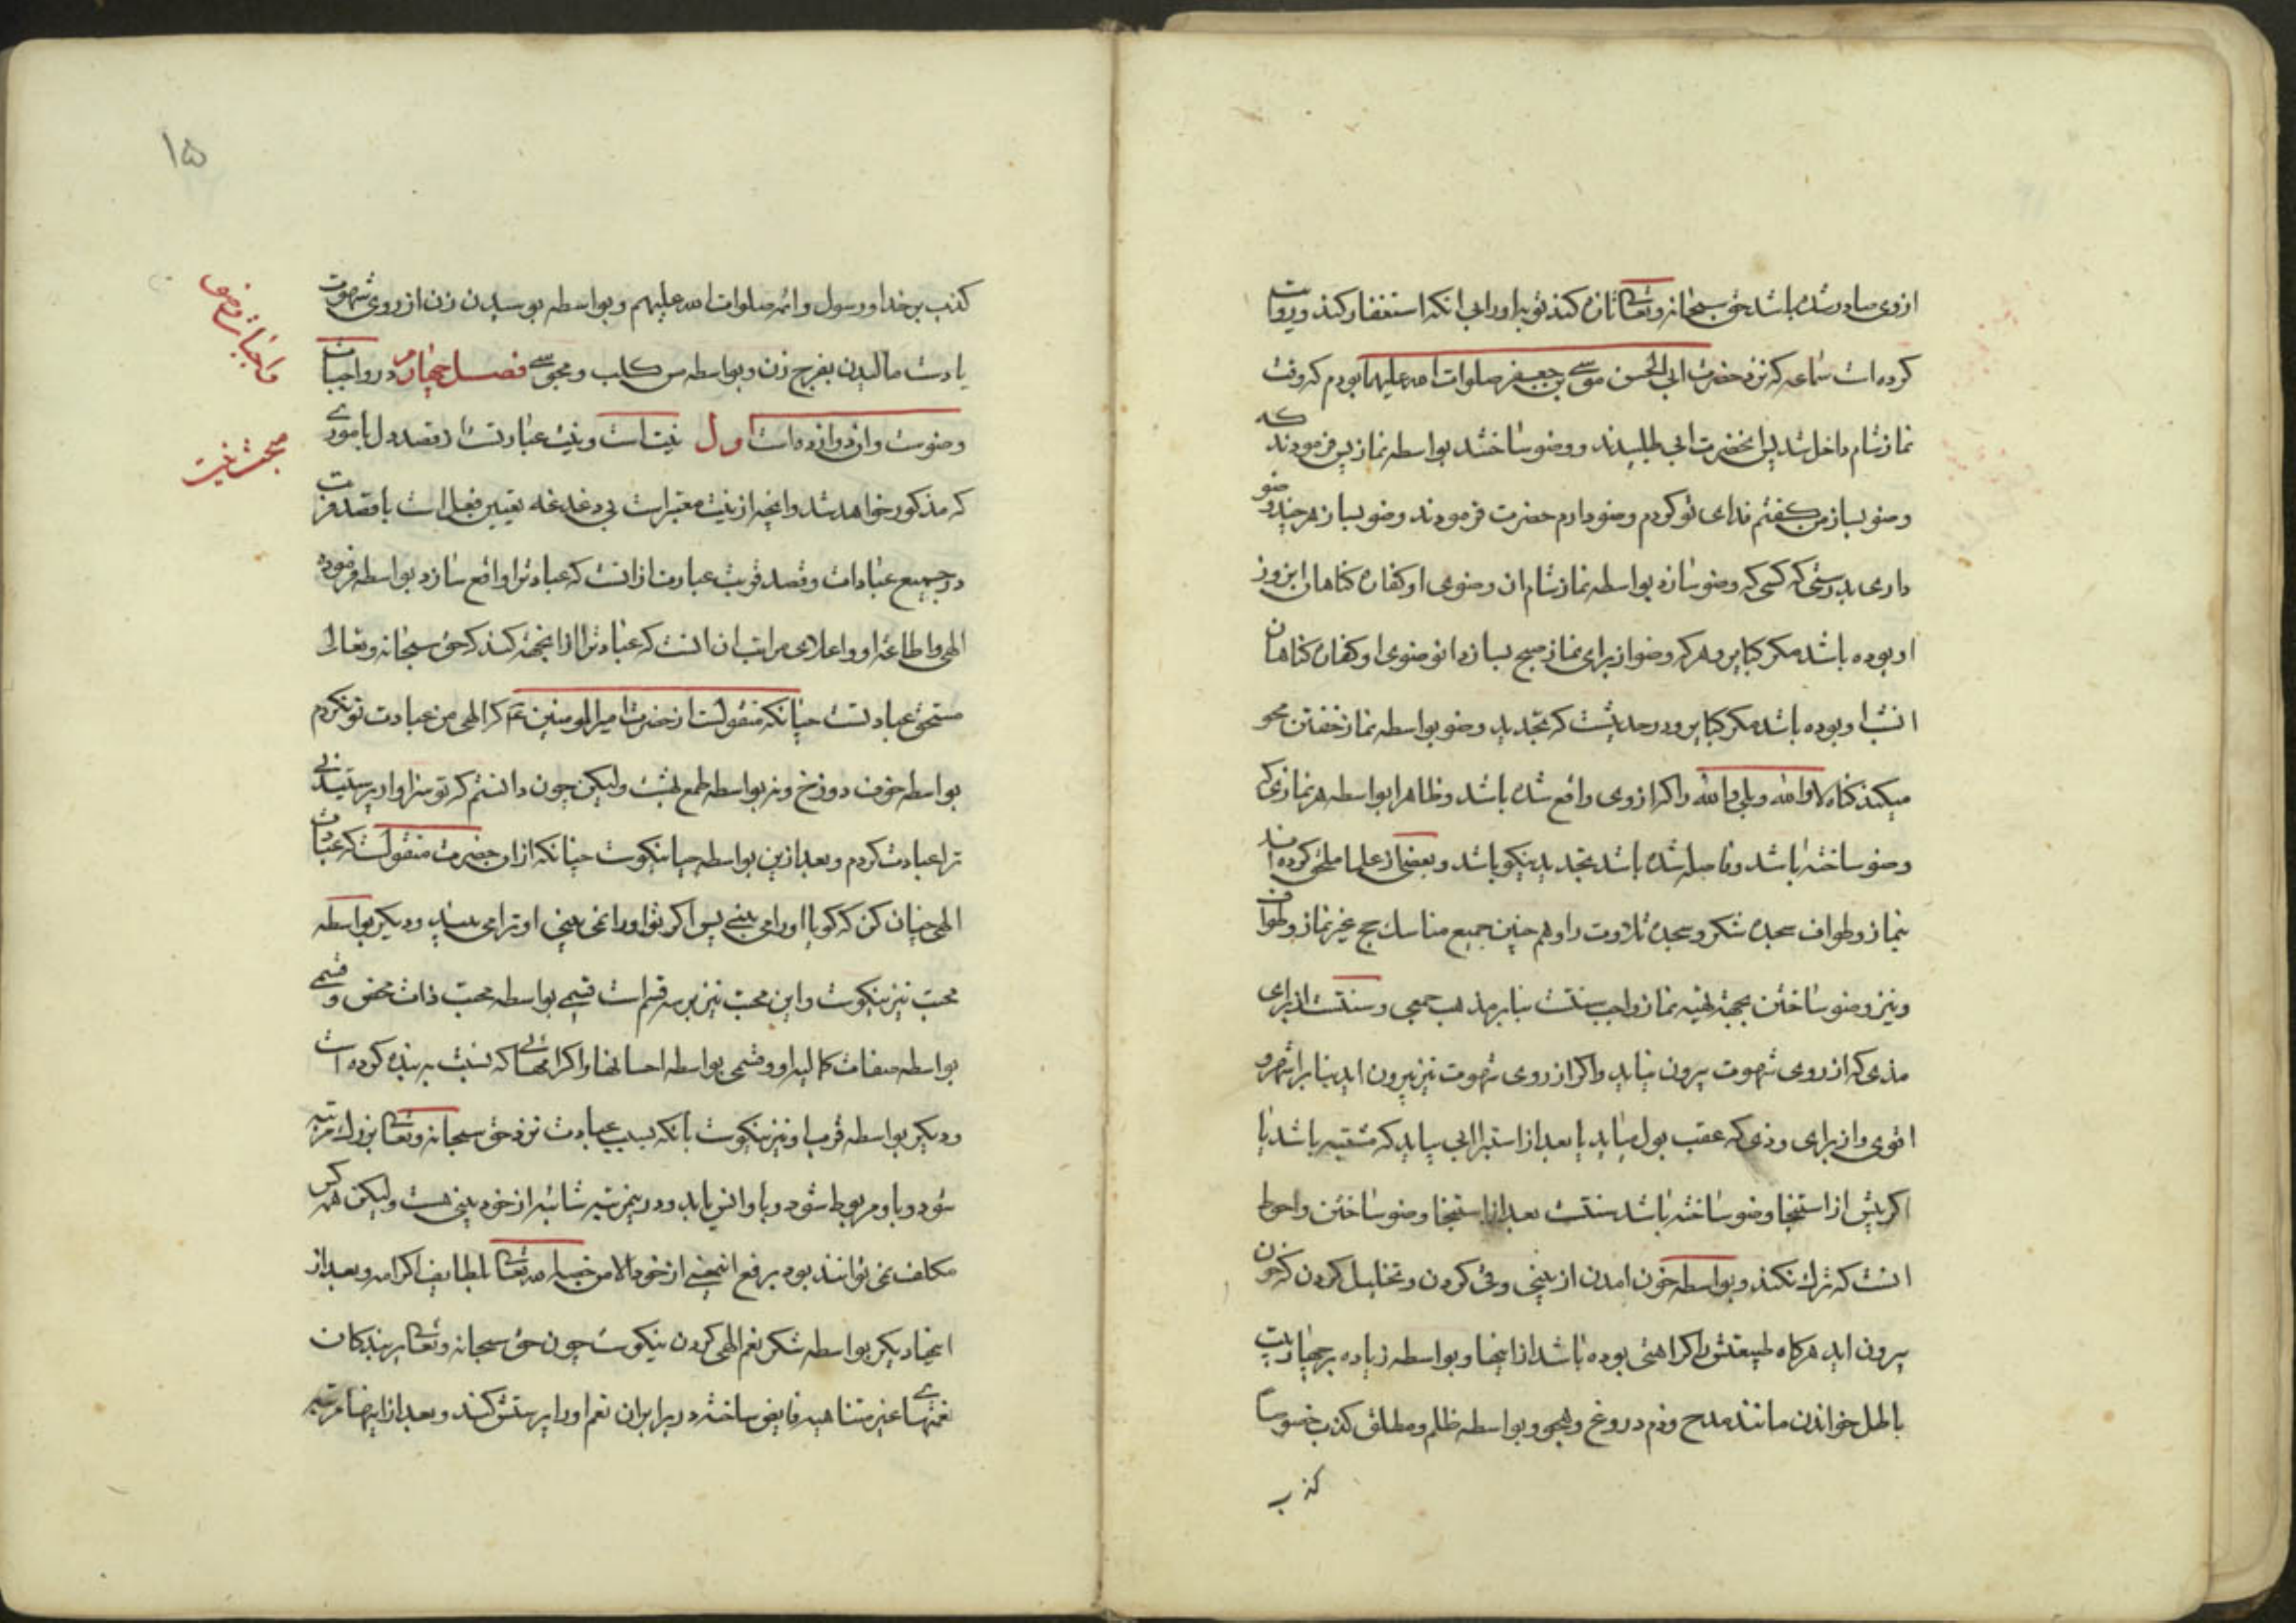 ازوی صادر شده باشد حق سبحانه وتعالی تازه کند توبه اورا بی انکه استغفار کند وروایت
کرده است سماعه که نزد حضرت ابی الحسن موسی بن جعفر صلوات الله علیهما بودم که وقت
نماز شام داخل شد پس انحضرت ابی طلبیدند ووضو ساختند بواسطه نماز پس فرمودند که
وضو بساز من گفتم فدای تو کردم وضو دارم حضرت فرمودند وضو بساز هر چند وضو
داری بدرستی که کسی که وضو سازد بواسطه نماز شام ان وضوی او کفاره کناهان ان روز
او بوده باشد مکر کبایر وهر که وضو از برای نماز صبح بسازد انوضوی او کفاره کناهان
انشب او بوده باشد مکر کبایر ودر حدیثست که تجدید وضو بواسطه نماز خفتن محو
میکند کناه لا والله وبلی والله را اکر ازوی واقع شده باشد وظاهرا بواسطه هر نمازی که
وضو ساخته باشد وفاصله شده باشد تجدید نیکو باشد وبعضی از علما ملحق کرده اند
بنماز وطواف سجده شکر وسجده تلاوت را وهم چنین جمیع مناسک حج غیر نماز وطواف
ونیز وضو ساختن بجهة تهیه نماز واجب سنتست بنابر مذهب جمعی وسنتست از برای
مذی که از روی شهوت بیرون نیاید واکر از روی شهوت نیز بیرون اید بنابر اشهر و
اقوی واز برای وذی که عقب بول میاید یا بعد از استبرا ابی بیاید که مشتبه باشد یا
اکر پیش از استنجا وضو ساخته باشد سنتست بعد از استنجا وضو ساختن واحوط
انست که ترک نکند وبواسطه خون امدن از بینی وقی کردن وتخلیل کردن که خون
بیرون اید هرکاه طبیعتش را کراهتی بوده باشد از اینها وبواسطه زیاده بر چهار بیت
باطل خواندن مانند مدح وذم دروغ وهجو وبواسطه ظلم ومطلق کذب خصوصا
کذب
۱۵
کذب بر خدا ورسول وائمه صلوات الله علیهم وبواسطه بوسیدن زن از روی شهوت
یا دست مالیدن بفرج زن وبواسطه مس کلب ومجوسی فصل چهارم در واجبات
واجبات وضو
وضوست وان دوازده است اول نیت است ونیت عبارتست از قصد دل باموری
مبحث نیت
که مذکور خواهد شد وانچه از نیت معتبر است بی دغدغه تعیین فعل است با قصد قربت
در جمیع عبادات وقصد قربت عبارت ازانست که عبادترا واقع سازد بواسطه فرموده
الهی واطاعه او واعلای مراتب ان انست که عبادترا ازانجهة کند که حق سبحانه وتعالی
مستحق عبادتست چنانکه منقولست از حضرت امیر المومنین ع که الهی من عبادت تو نکردم
بواسطه خوف دوزخ ونه بواسطه طمع بهشت ولیکن چون دانستم که تو سزاوار پرستیدنی
ترا عبادت کردم وبعد ازین بواسطه حیا نیکوست چنانکه ازان حضرت منقولست که عبادت
الهی چنان کن که کویا اورا می بینی پس اکر تو اورا نمی بینی او ترا می بیند ودیکر بواسطه
محبت نیز نیکوست واین محبت نیز بر سه قسم است قسمی بواسطه محبت ذات محض وقسمی
بواسطه صفات کمالیه او وقسمی بواسطه احسانها واکرامهائی که نسبت به بنده کرده است
ودیکر بواسطه قرب او نیز نیکوست بانکه بسبب عبادت نزد حق سبحانه وتعالی بزرک مرتبه
شود وباو مربوط شود وباو انس یابد ودرین مرتبه شائبه از خود بینی هست ولیکن همه کس
مکلف نمی توانند بود برفع انمعنی از خود الا من خصه الله تعالی بلطایف اکرامه وبعد از
اینها دیکر بواسطه شکر نعم الهی کردن نیکوست چون حق سبحانه وتعالی بر بندکان
نعمتهای غیر متناهیه فایض ساخته در برابر ان نعم اورا پرستش کنند وبعد از اینها مرتبه